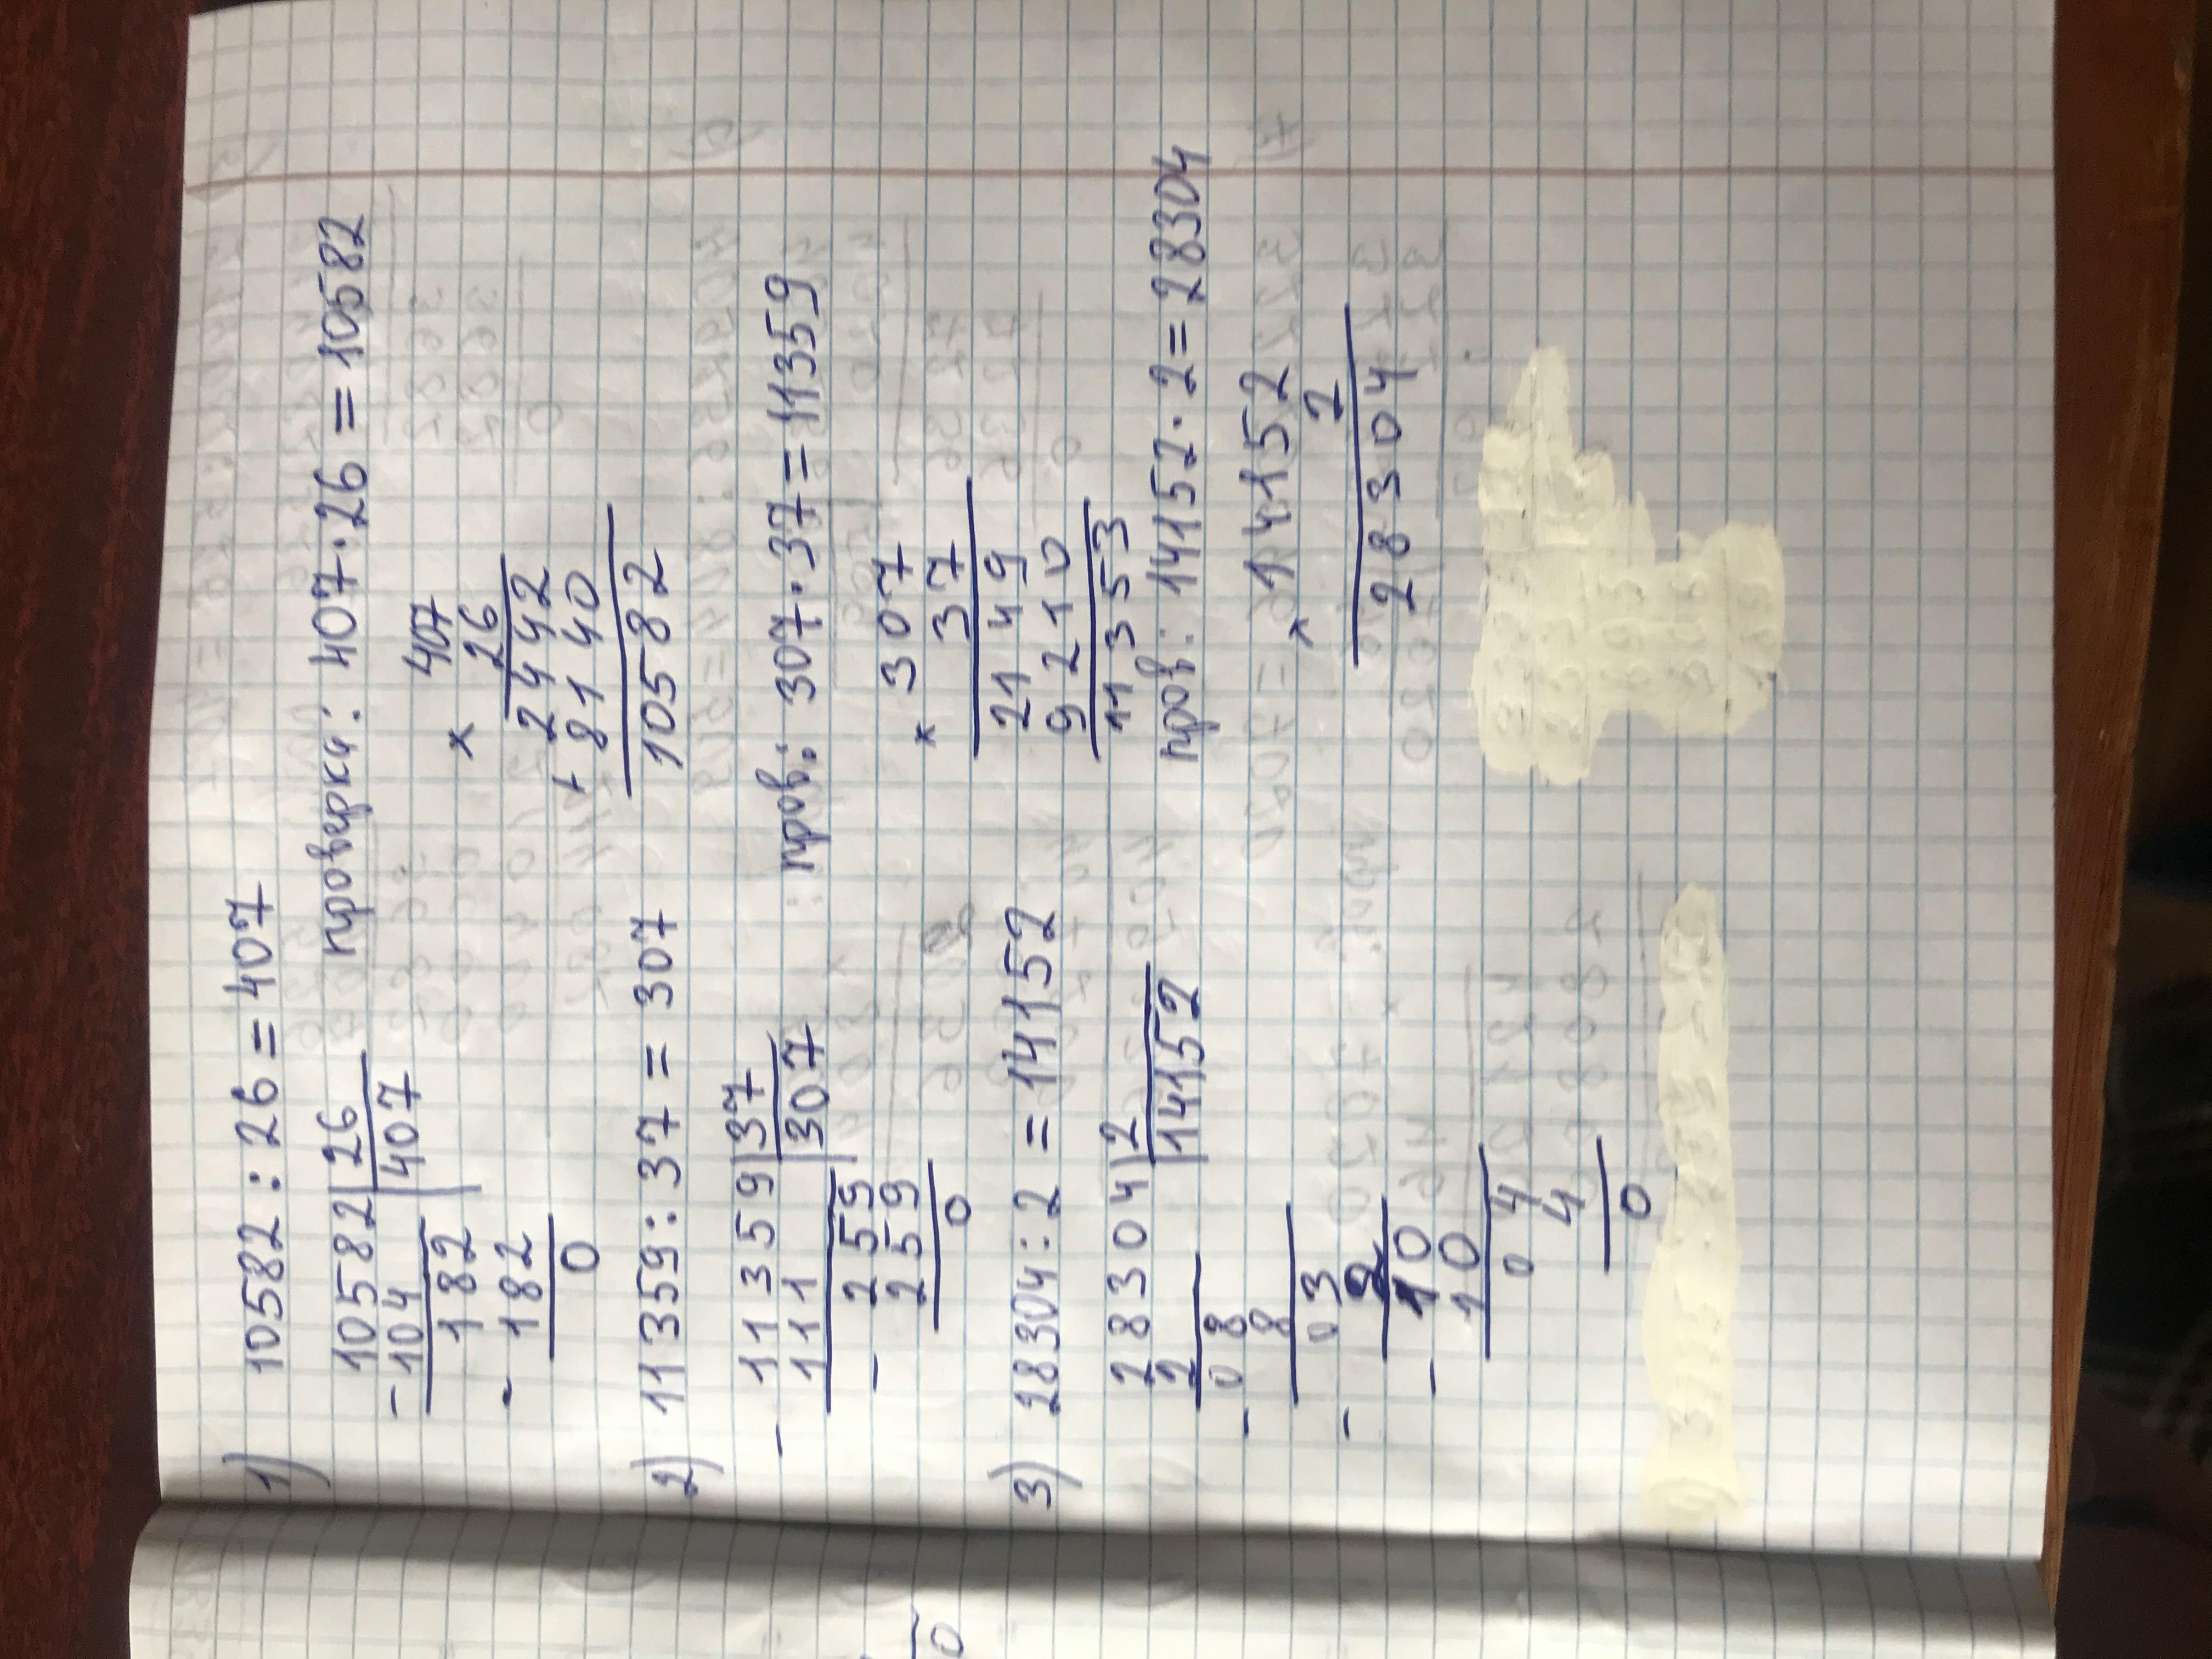 1) 10582 : 26 = 407
10582 | 26
- 104 | 407
182
- 182
0
проверка: 407 · 26 = 10582
× 407
26
2442
+ 8140
10582
2) 11359 : 37 = 307
- 11359 | 37
111 | 307
- 2559
259
0
пров: 307 · 37 = 11359
× 307
37
2149
9210
11353
3) 28304 : 2 = 14152
28304 | 2
2 | 14152
- 08
8
- 03
2
- 10
10
04
4
0
пров: 14152 · 2 = 28304
× 14152
2
28304
0